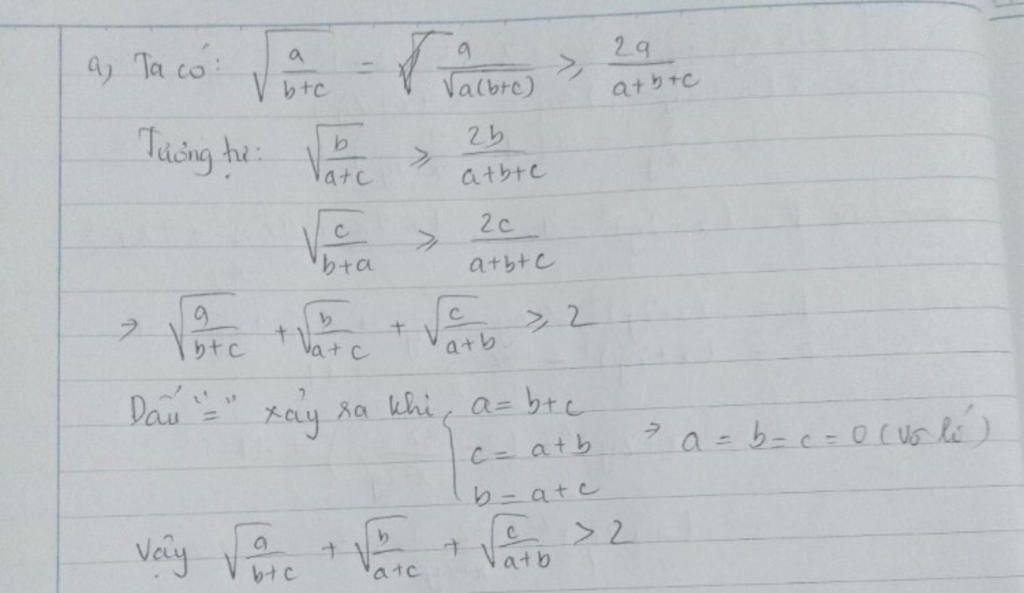 a) Ta có: √(a/(b+c)) = a/√(a(b+c)) ≥ 2a/(a+b+c)
Tương tự: √(b/(a+c)) ≥ 2b/(a+b+c)
√(c/(b+a)) ≥ 2c/(a+b+c)
⇒ √(a/(b+c)) + √(b/(a+c)) + √(c/(a+b)) ≥ 2
Dấu "=" xảy ra khi { a = b+c
c = a+b ⇒ a = b = c = 0 (vô lí)
b = a+c
Vậy √(a/(b+c)) + √(b/(a+c)) + √(c/(a+b)) > 2